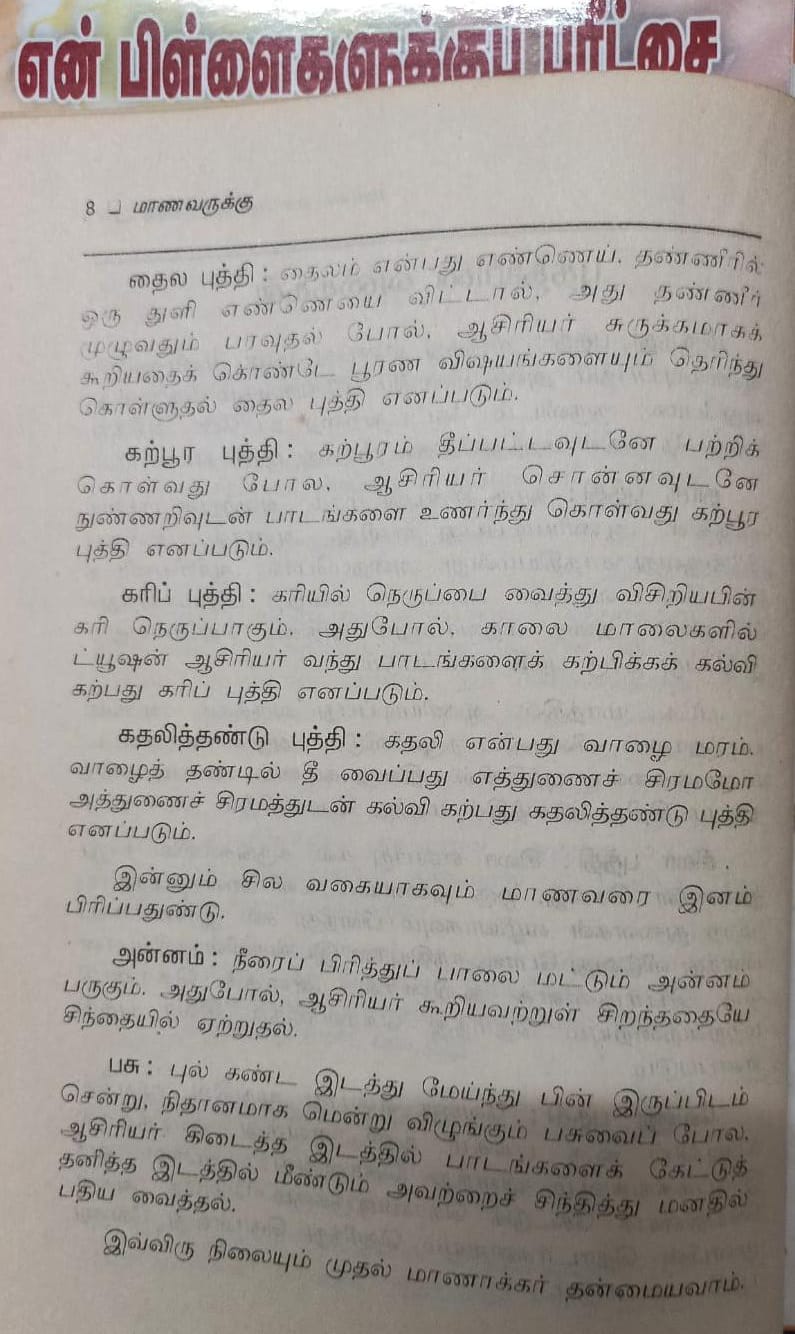 என் பிள்ளைகளுக்குப் பரீட்சை
8 மாணவருக்கு
தைல புத்தி : தைலம் என்பது எண்ணெய். தண்ணீரில்
ஒரு துளி எண்ணெயை விட்டால், அது தண்ணீர்
முழுவதும் பரவுதல் போல், ஆசிரியர் சுருக்கமாகக்
கூறியதைக் கொண்டே பூரண விஷயங்களையும் தெரிந்து
கொள்ளுதல் தைல புத்தி எனப்படும்.
கற்பூர புத்தி : கற்பூரம் தீப்பட்டவுடனே பற்றிக்
கொள்வது போல, ஆசிரியர் சொன்னவுடனே
நுண்ணறிவுடன் பாடங்களை உணர்ந்து கொள்வது கற்பூர
புத்தி எனப்படும்.
கரிப் புத்தி : கரியில் நெருப்பை வைத்து விசிறியபின்
கரி நெருப்பாகும். அதுபோல், காலை மாலைகளில்
ட்யூஷன் ஆசிரியர் வந்து பாடங்களைக் கற்பிக்கக் கல்வி
கற்பது கரிப் புத்தி எனப்படும்.
கதலித்தண்டு புத்தி : கதலி என்பது வாழை மரம்.
வாழைத் தண்டில் தீ வைப்பது எத்துணைச் சிரமமோ
அத்துணைச் சிரமத்துடன் கல்வி கற்பது கதலித்தண்டு புத்தி
எனப்படும்.
இன்னும் சில வகையாகவும் மாணவரை இனம்
பிரிப்பதுண்டு.
அன்னம் : நீரைப் பிரித்துப் பாலை மட்டும் அன்னம்
பருகும். அதுபோல், ஆசிரியர் கூறியவற்றுள் சிறந்ததையே
சிந்தையில் ஏற்றுதல்.
பசு : புல் கண்ட இடத்து மேய்ந்து பின் இருப்பிடம்
சென்று, நிதானமாக மென்று விழுங்கும் பசுவைப் போல,
ஆசிரியர் கிடைத்த இடத்தில் பாடங்களைக் கேட்டுத்
தனித்த இடத்தில் மீண்டும் அவற்றைச் சிந்தித்து மனதில்
பதிய வைத்தல்.
இவ்விரு நிலையும் முதல் மாணாக்கர் தன்மையவாம்.